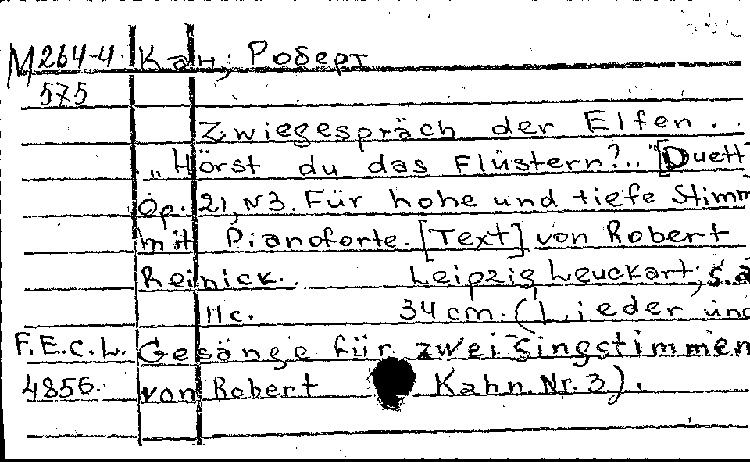 M264-4 Кан, Роберт
575
Zwiegespräch der Elfen..
"Hörst du das Flüstern?.." [Duett
Op. 21, N3. Für hohe und tiefe Stimm
mit Pianoforte. [Text] von Robert
Reinick. Leipzig Leuckart, s.a
11c. 34 cm. (Lieder und
F.E.c.L. Gesänge für zwei Singstimmen
4856. von Robert Kahn. Nr. 3).